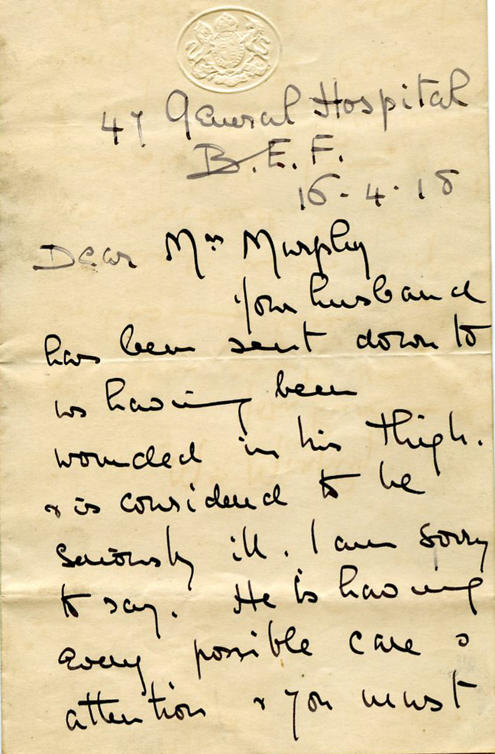 47 General Hospital
B.E.F.
16-4-18
Dear Mrs Murphy
Your husband
has been sent down to
us having been
wounded in his thigh.
& is considerd to be
seriously ill. I am sorry
to say. He is having
every possible care &
attention & you must